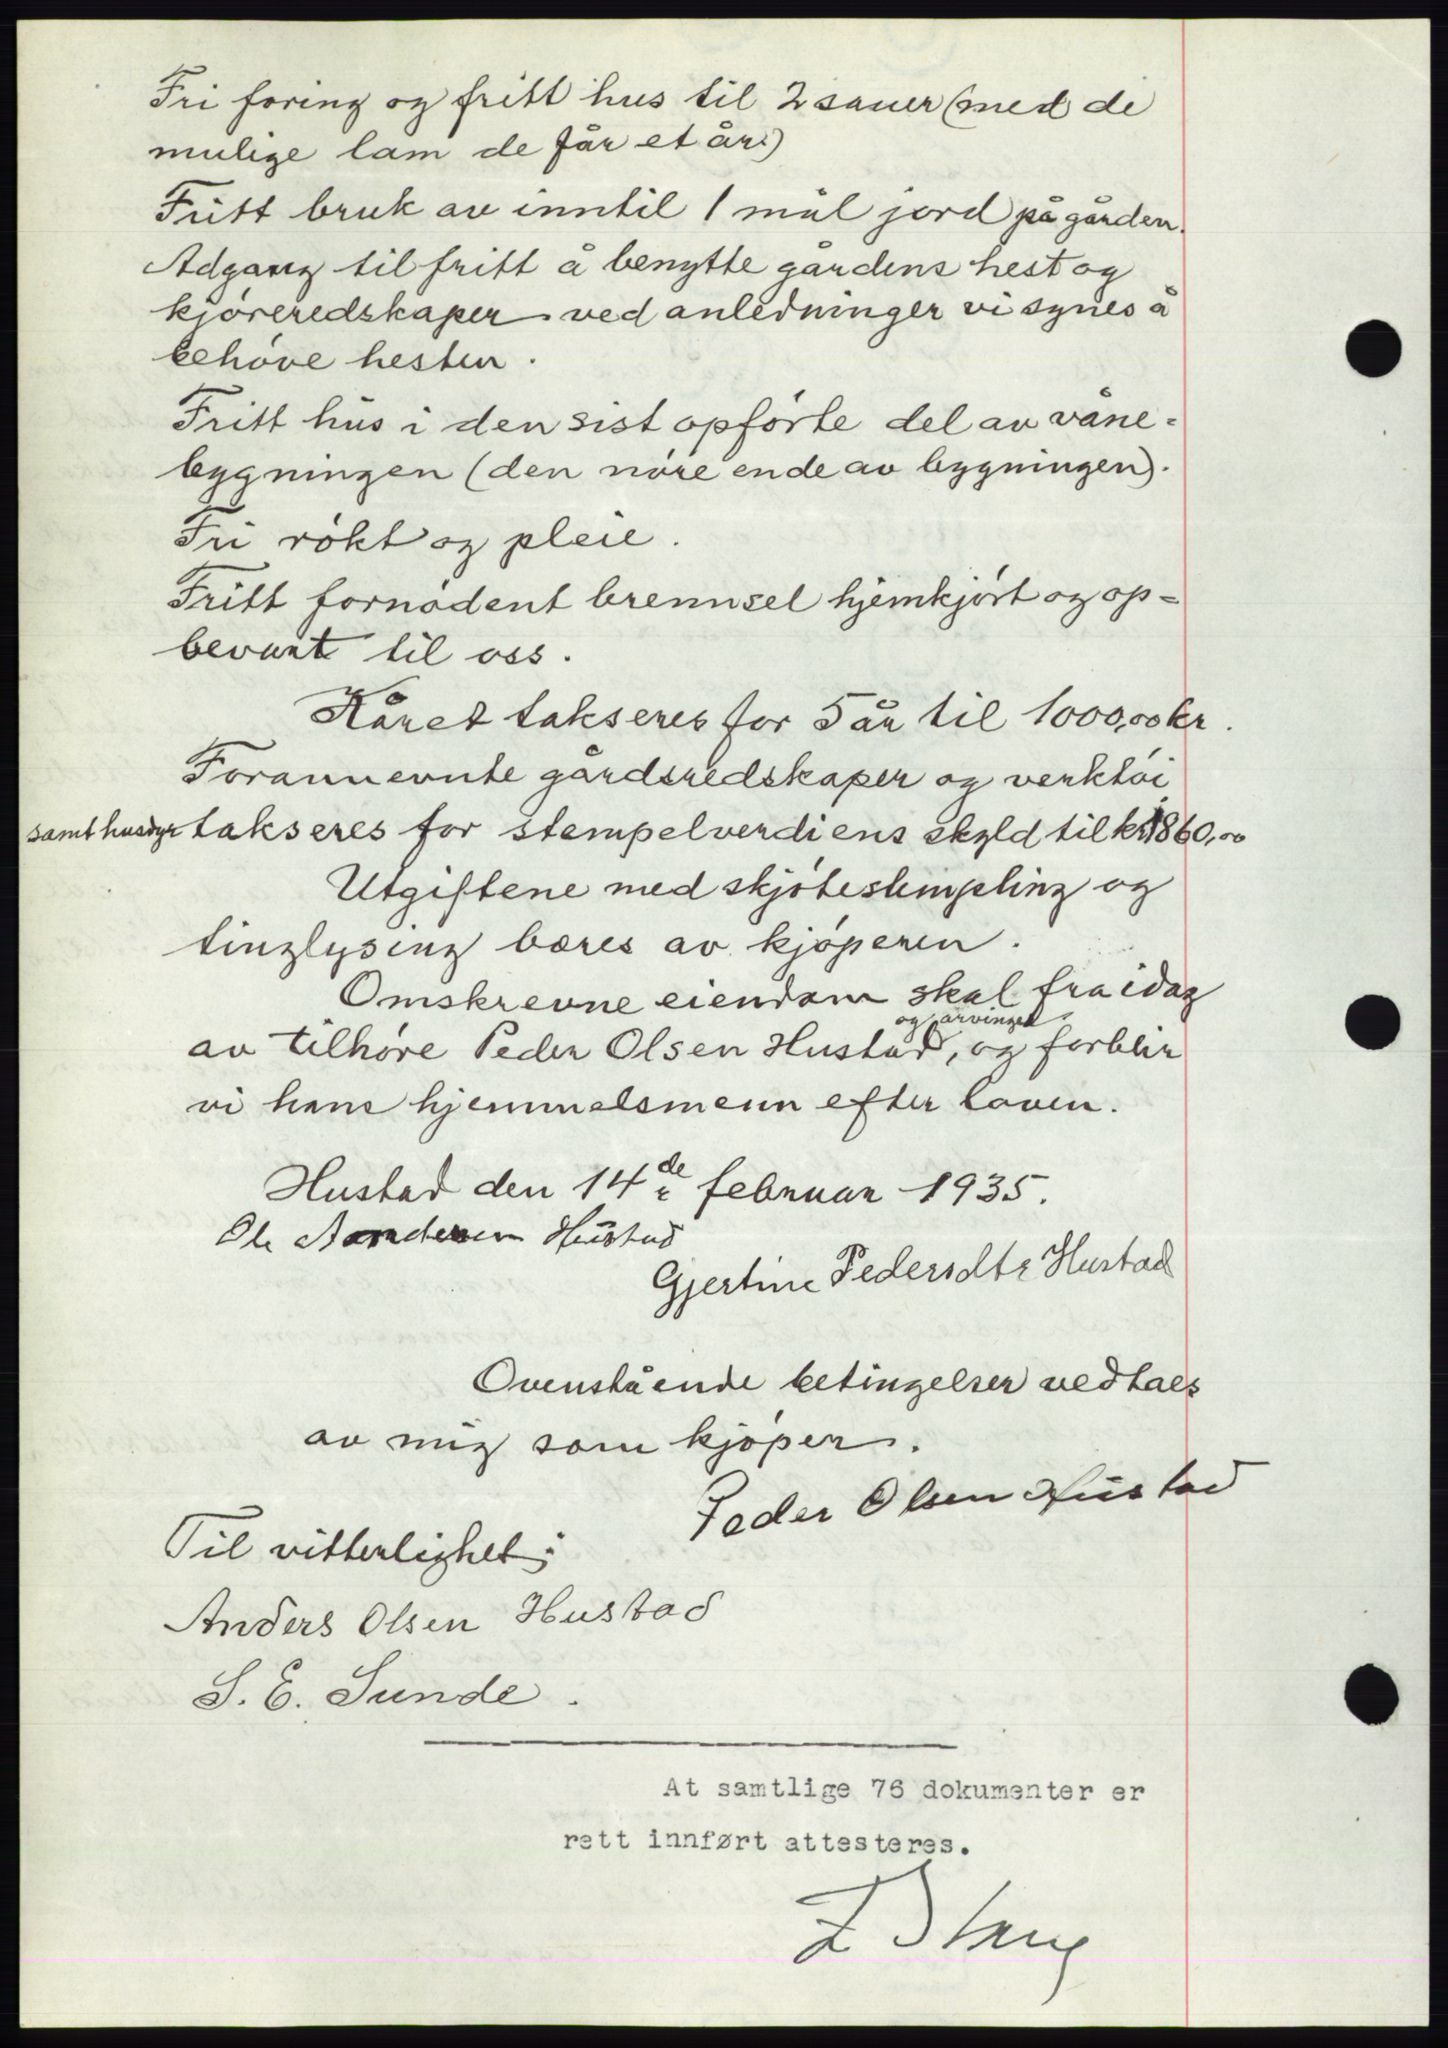 Fri foring og fritt hus til 2 sauer (med de
mulige lam de får et år.)
Fritt bruk av inntil 1 mål jord på gården.
Adgang til fritt å benytte gårdens hest og
kjøreredskaper ved anledninger vi synes å
behøve hesten.
Fritt hus i den sist opførte del av våne-
bygningen (den nøre ende av bygningen).
Fri røkt og pleie.
Fritt fornødent brennsel hjemkjørt og op-
bevart til oss.
Kåret takseres for 5 år til 1000,00 kr.
Forannevnte gårdsredskaper og verktøi
samt husdyr takseres for stempelverdiens skyld til kr 1860,00
Utgiftene med skjøtestempling og
tinglysing bæres av kjøperen.
Omskrevne eiendom skal fra idag
og arvinger
av tilhøre Peder Olsen Hustad, og forblir
vi hans hjemmelsmenn efter loven.
Hustad den 14de februar 1935.
Ole Andersen Hustad
Gjertine Pedersdtr Hustad
Ovenstående betingelser vedtaes
av mig som kjøper.
Peder Olsen Hustad
Til vitterlighet:
Anders Olsen Hustad
S. E. Sunde.
At samtlige 76 dokumenter er
rett innført attesteres.